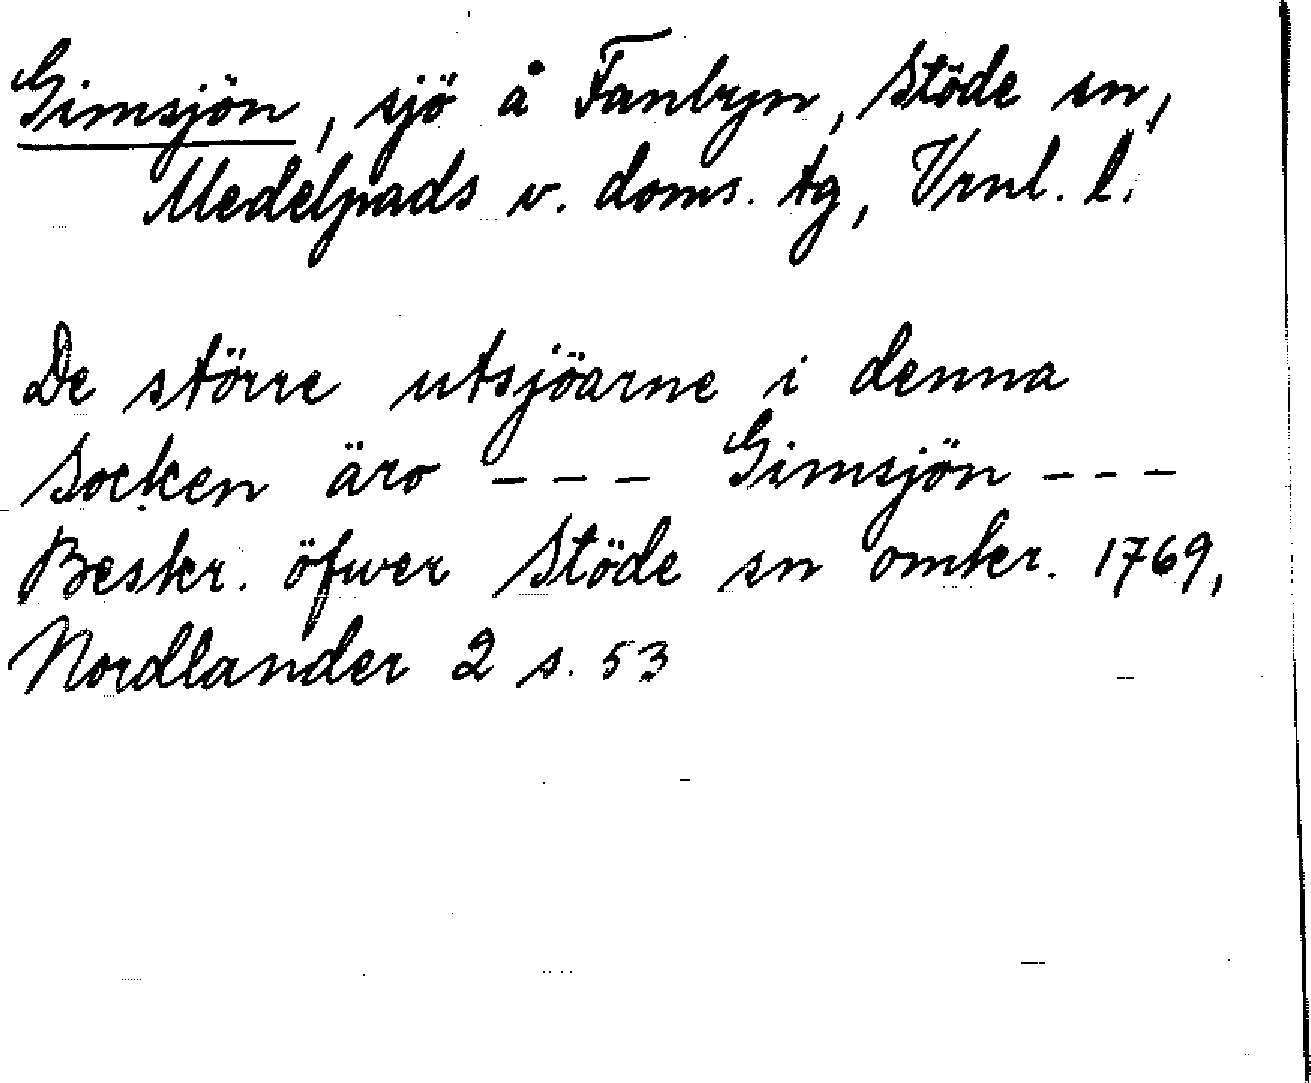 Gimsjön, sjö å Fanbyn, Stöde sn,
Medelpads v. doms. tg, Vrnl. l.
De större utsjöarne i denna
Socken äro - - - Gimsjön - - -
Beskr. öfwer Stöde sn omkr. 1769,
Nordlander 2 s. 53